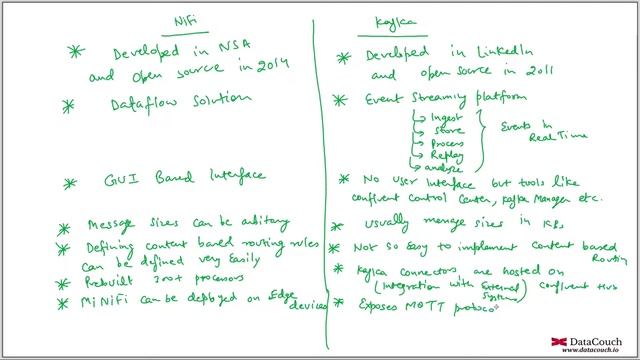 NiFi
* Developed in NSA
and open source in 2014
* Dataflow Solution
* GUI Based Interface
* Message sizes can be arbitary
* Defining content based routing rules
can be defined very Easily
* Prebuilt 300+ processors
* MiNiFi can be deployed on Edge
devices
Kafka
* Developed in LinkedIn
and open source in 2011
* Event Streaming platform
Ingest
Store
Process
Replay
analyze
Events in
Real Time
* No User Interface but tools like
confluent Control Center, Kafka Manager etc.
* Usually message sizes in KBs
* Not so Easy to implement Content based
Routing
* Kafka connectors are hosted on
(Integration with External
Systems)
confluent Hub
* Exposes MQTT protoco
DataCouch
www.datacouch.io